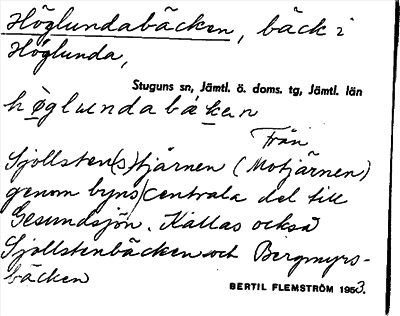 Höglundabäcken, bäck i
Höglunda,
Stuguns sn, Jämtl. ö. doms. tg, Jämtl. län
höglundabäkan
Från
Sjöllsten(s)tjärnen (Motjärnen)
genom byns centrala del till
Gesundsjön. Kallas också
Sjöllstenbäcken och Bergmyrs-
bäcken
BERTIL FLEMSTRÖM 1953.